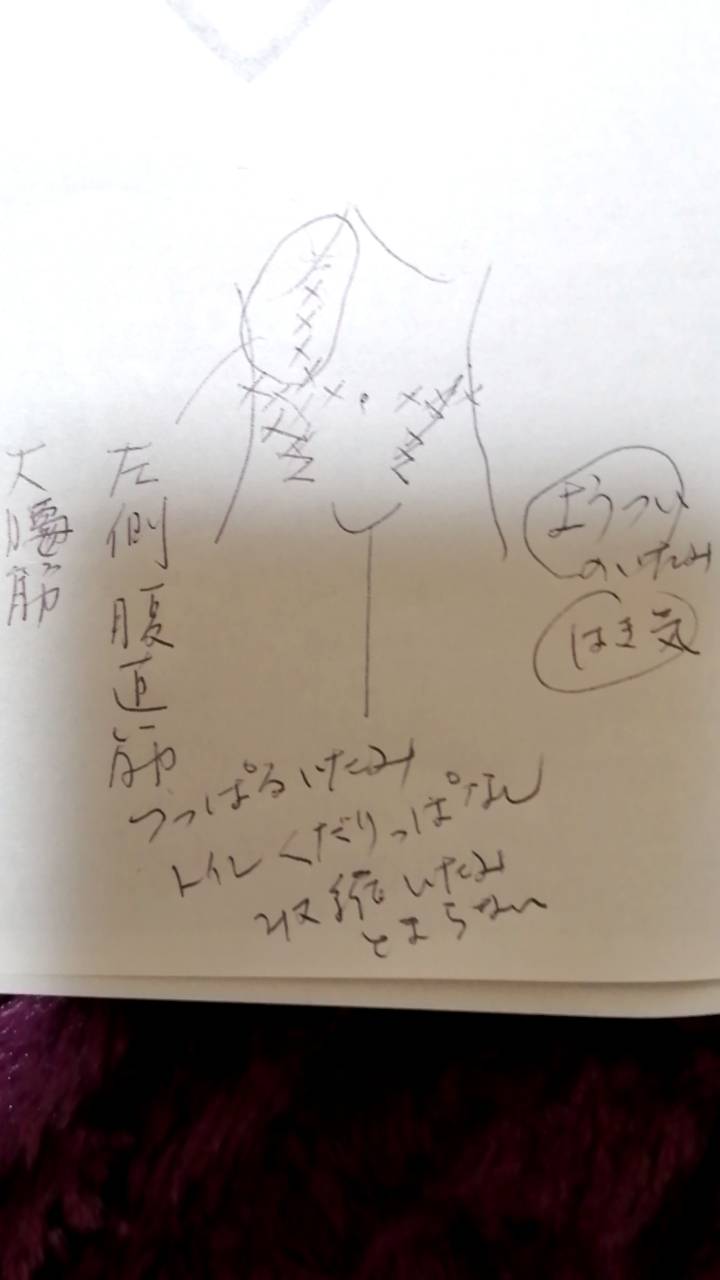 左側腹直筋
大腰筋
ようつい
のいたみ
はき気
つっぱるいたみ
トイレくだりっぱなし
収縮いたみ
とまらない